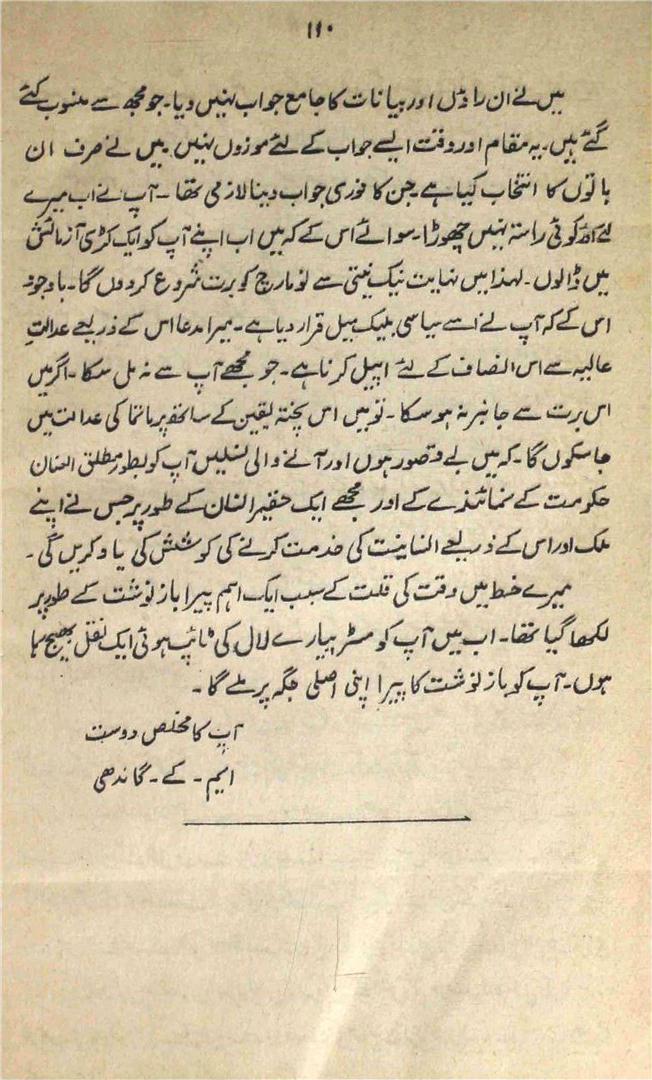 ۱۱۰
میں نے ان رازوں اور بیانات کا جامع جواب نہیں دیا۔ جو مجھ سے منسوب کئے
گئے ہیں۔ یہ مقام اور وقت ایسے جواب کے لئے موزوں نہیں۔ میں نے صرف ان
باتوں کا انتخاب کیا ہے جن کا فوری جواب دینا لازمی تھا۔ آپ نے اب میرے
لئے کوئی راستہ نہیں چھوڑا۔ سوائے اس کے کہ میں اب اپنے آپ کو ایک کڑی آزمائش
میں ڈالوں۔ لہذا میں نہایت نیک نیتی سے نو مارچ کو برت شروع کردوں گا۔ باوجود
اس کے کہ آپ نے اسے سیاسی بلیک میل قرار دیا ہے۔ میرا مدعا اس کے ذریعے عدالتِ
عالیہ سے اس انصاف کے لئے اپیل کرنا ہے۔ جو مجھے آپ سے نہ مل سکا۔ اگر میں
اس برت سے جانبر نہ ہوسکا۔ تو میں اس پختہ یقین کے ساتھ پرماتما کی عدالت میں
جاسکوں گا۔ کہ میں بے قصور ہوں اور آنے والی نسلیں آپ کو بطور مطلق العنان
حکومت کے نمائندے کے اور مجھے ایک حقیر انسان کے طور پر جس نے اپنے
ملک اور اس کے ذریعے انسانیت کی خدمت کرنے کی کوشش کی یاد کریں گی۔
میرے خط میں وقت کی قلت کے سبب ایک اہم پیرا باز نوشت کے طور پر
لکھا گیا تھا۔ اب میں آپ کو مسٹر پیارے لال کی ٹائپ ہوئی ایک نقل بھیج رہا
ہوں۔ آپ کو باز نوشت کا پیرا اپنی اصلی جگہ پر ملے گا۔
آپ کا مخلص دوست
ایم۔ کے۔ گاندھی